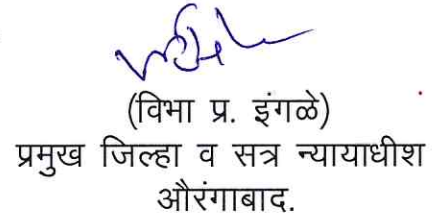 (विभा प्र. इंगळे)
प्रमुख जिल्हा व सत्र न्यायाधीश
औरंगाबाद.